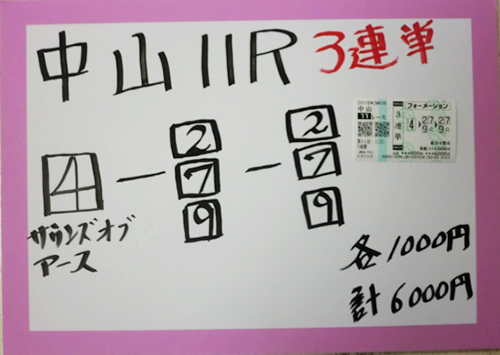 中山11R 3連単
4 — 2 7 9 — 2 7 9
サウンズオブ
アース
各1000円
計6000円
中山
11 レース
3連単
フォーメーション